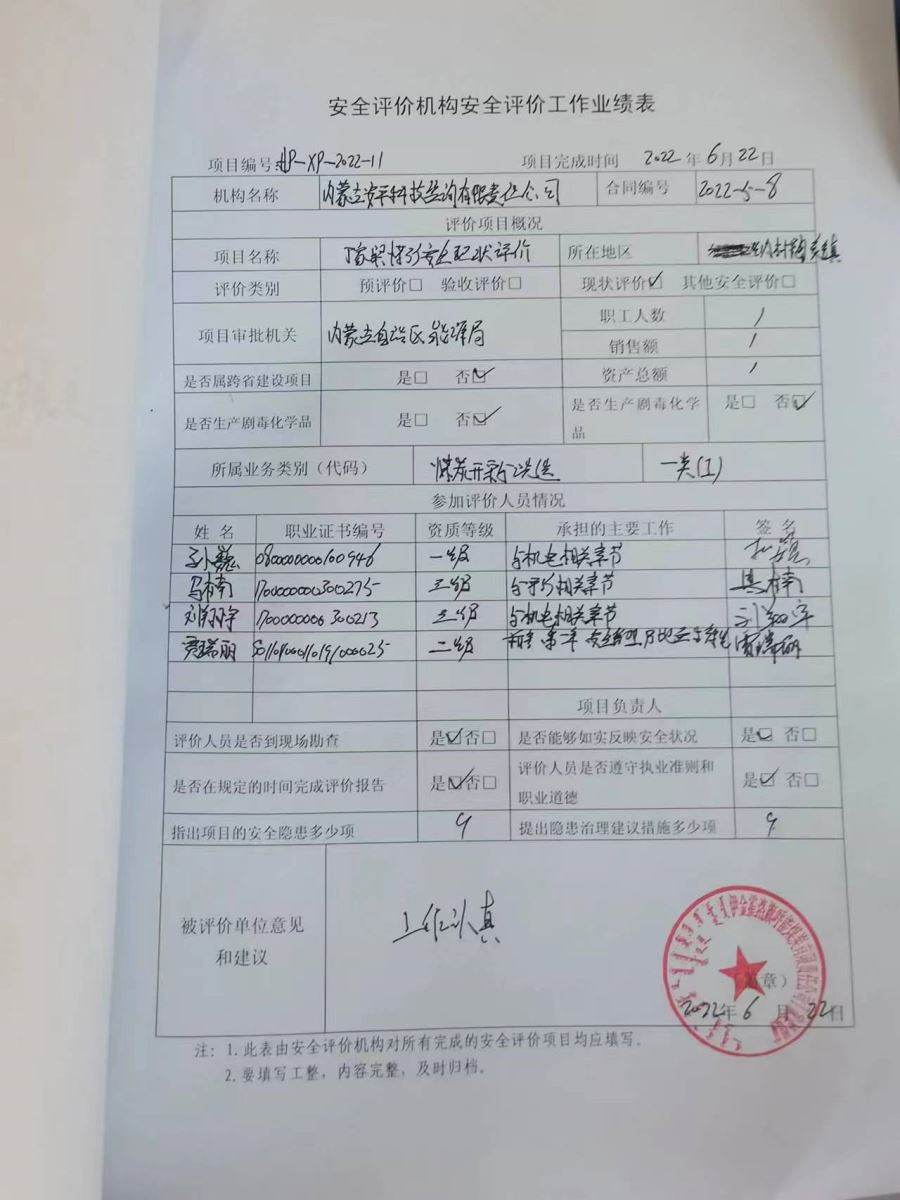 安全评价机构安全评价工作业绩表
项目编号: AP-XP-2022-11 项目完成时间 2022年6月22日
机构名称 内蒙古安平科技咨询有限责任公司 合同编号 2022-5-8
评价项目概况
项目名称 现状评价 所在地区
评价类别 预评价□ 验收评价□ 现状评价☑ 其他安全评价□
项目审批机关 内蒙古自治区能源局 职工人数 /
销售额 /
是否属跨省建设项目 是□ 否☑ 资产总额 /
是否生产剧毒化学品 是□ 否☑ 是否生产剧毒化学品 是□ 否☑
所属业务类别（代码） 煤炭开采和洗选 一类(1)
参加评价人员情况
姓 名 职业证书编号 资质等级 承担的主要工作 签 名
0800000000100546 一级 与机电相关章节
马楠 1700000000300275 三级 相关章节 马楠
刘翔宇 1700000000300213 三级 与机电相关章节 刘翔宇
贾瑞丽 S011010001101191000025 二级 贾瑞丽
项目负责人
评价人员是否到现场勘查 是☑否□ 是否能够如实反映安全状况 是☑ 否□
是否在规定的时间完成评价报告 是☑否□ 评价人员是否遵守执业准则和职业道德 是☑ 否□
指出项目的安全隐患多少项 9 提出隐患治理建议措施多少项 9
被评价单位意见和建议
工作认真
（盖章）
2022年 6 月 22日
注：1.此表由安全评价机构对所有完成的安全评价项目均应填写。
2.要填写工整，内容完整，及时归档。